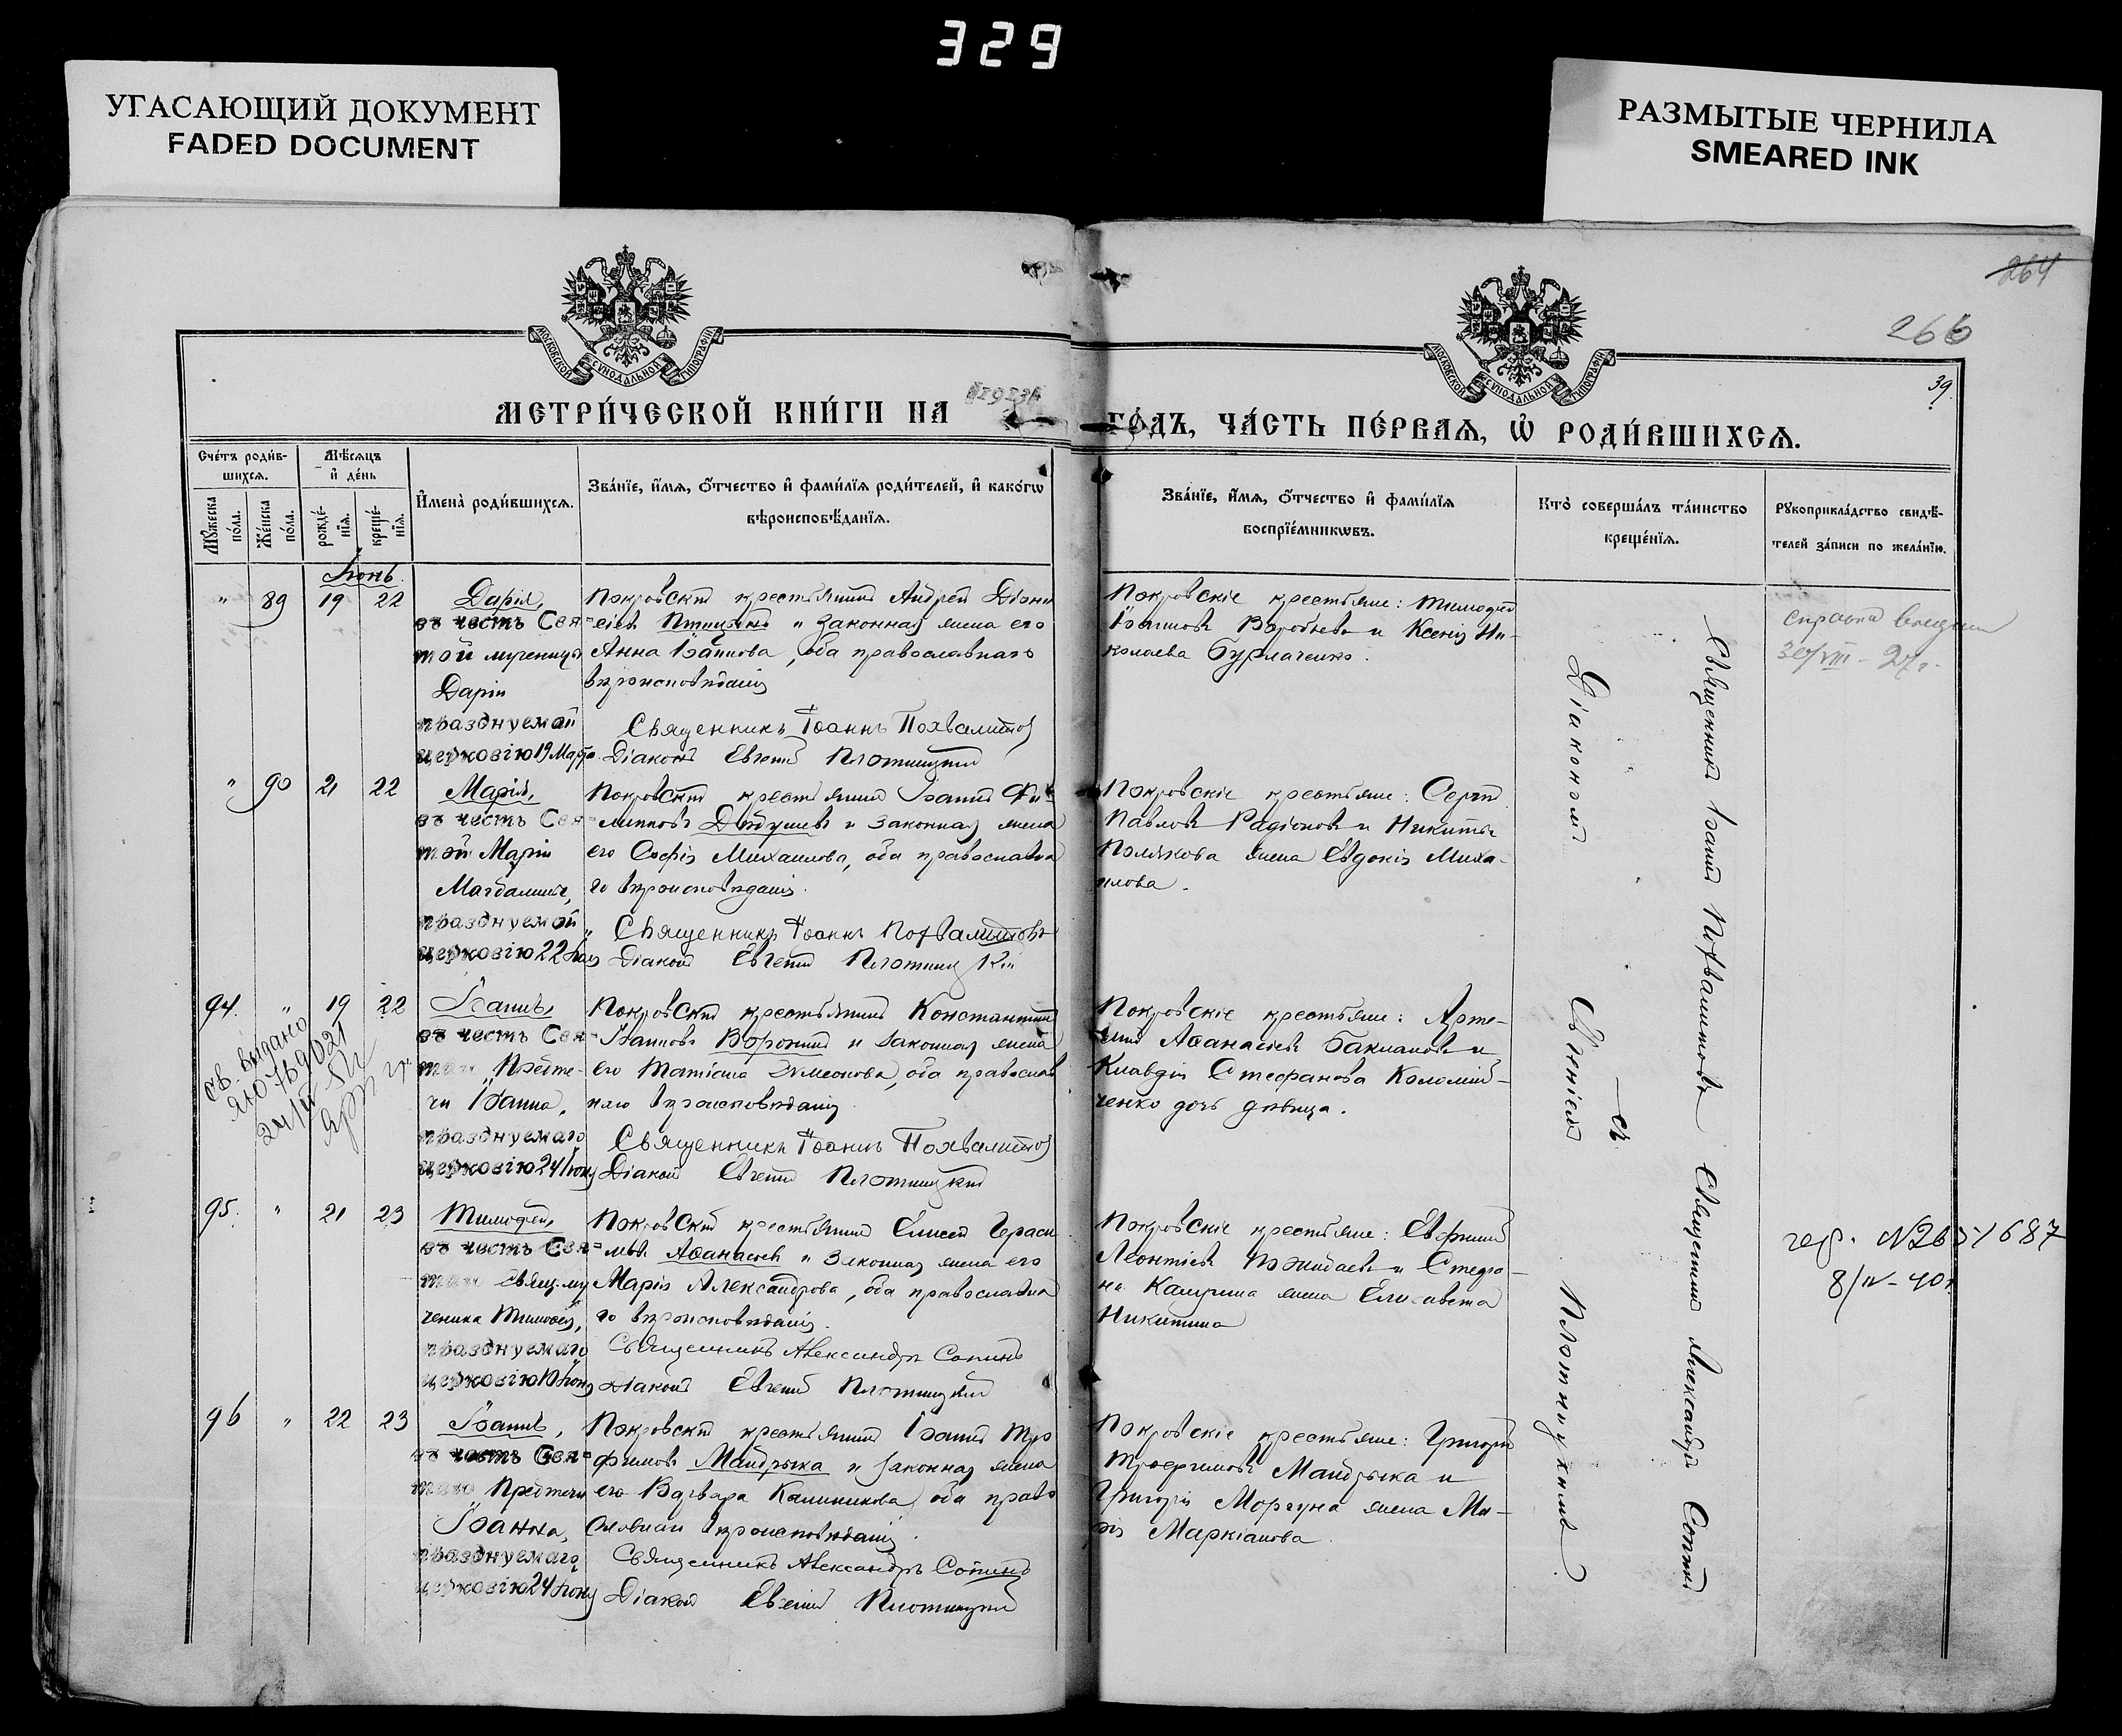 329
УГАСАЮЩИЙ ДОКУМЕНТ
FADED DOCUMENT
РАЗМЫТЫЕ ЧЕРНИЛА
SMEARED INK
264
266
39.
МОСКОВСКОЙ СУНОДАЛЬНОЙ ТИПОГРАФІИ
МОСКОВСКОЙ СУНОДАЛЬНОЙ ТИПОГРАФІИ
МЕТРИ́ЧЕСКОЙ КНИ́ГИ НА
ГО́ДЪ, ЧА́СТЬ ПЕ́РВАѦ, Ѡ҆ РОДИ́ВШИХСѦ.
Сче́тъ роди́в-
шихсѧ.
Мꙋ́жеска
по́ла.
Же́нска
по́ла.
Мѣ́сѧцъ
и҆ де́нь
рожде́-
нїѧ.
креще́-
нїѧ.
И҆мена̀ роди́вшихсѧ.
Зва́нїе, и҆́мѧ, ѻ҆́тчество и҆ фами́лїѧ роди́телей, и҆ како́гѡ
вѣроисповѣ́данїѧ.
Зва́нїе, и҆́мѧ, ѻ҆́тчество и҆ фами́лїѧ
воспрїе́мникѡвъ.
Кто̀ соверша́лъ та́инство
креще́нїѧ.
Рꙋкоприкла́дство свидѣ́-
телей за́писи по жела́нїю.
Іюнь.
" 89 19 22
Дарія,
въ честь Свя-
той мученицы
Даріи
празднуемой
церковію 19 Марта
Покровскій крестьянинъ Андрей Діони
сіевъ Птицынъ и законная жена его
Анна Іванова, оба православнаго
вѣроисповѣданія
Священникъ Іоаннъ Похвалитов
Діаконъ Евгеній Плотницкій
Покровскіе крестьяне: Тимофей
Іоанновъ Воробьевъ и Ксенія Ни-
колаева Бурлаченко.
справка выдана
30/VIII - 27 г.
" 90 21 22
Марія,
въ честь Свя-
той Маріи
Магдалины,
празднуемой
церковію 22 Іюля
Покровскій крестьянинъ Іоаннъ Фи
липповъ Дѣдушевъ и законная жена
его Софія Михаилова, оба православна
го вѣроисповѣданія.
Священникъ Іоаннъ Похвалитовъ
Діаконъ Евгеній Плотницкій
Покровскіе крестьяне: Сергій
Павловъ Радіоновъ и Никиты
Полякова жена Евдокія Миха-
илова.
94. " 19 22
св. выдано
Іоаннъ,
въ честь Свя-
таго Предте-
чи Іоанна,
празднуемаго
церковію 24 Іюня
Покровскій крестьянинъ Константинъ
Іоанновъ Воронинъ и законная жена
его Татіана Симеонова, оба православ
наго вѣроисповѣданія.
Священникъ Іоаннъ Похвалитов
Діаконъ Евгеній Плотницкій
Покровскіе крестьяне: Арте-
мій Аѳанасіевъ Баклановъ и
Клавдія Стефанова Коломій-
ченко дочь дѣвица.
95. " 21 23
Тимоѳей,
въ честь Свя-
таго Свящ. му
ченика Тимоѳея,
празднуемаго
церковію 10 Іюня
Покровскій крестьянинъ Елисей Гераси
мовъ Аѳанасіевъ и законная жена его
Марія Александрова, оба православна
го вѣроисповѣданія.
Священникъ Александръ Сопинъ
Діаконъ Евгеній Плотницкій
Покровскіе крестьяне: Евфимій
Леонтіевъ Пожидаевъ и Стефа-
на Калугина жена Елисавета
Никитина
8/IV - 40 г.
96 " 22 23
Іоаннъ,
въ честь Свя-
таго Предтечи
Іоанна,
празднуемаго
церковію 24 Іюня
Покровскій крестьянинъ Іоаннъ Тро
фимовъ Мандрыка и законная жена
его Варвара Калиникова, оба право
славнаго вѣроисповѣданія.
Священникъ Александръ Сопинъ
Діаконъ Евгеній Плотницкій
Покровскіе крестьяне: Григорій
Трофимовъ Мандрыка и
Григорія Моргуна жена Ма-
рія Маркіанова.
Священники Іоаннъ Похвалитовъ Священникъ Александръ Сопинъ
съ
Діакономъ Евгеніемъ Плотницкимъ.